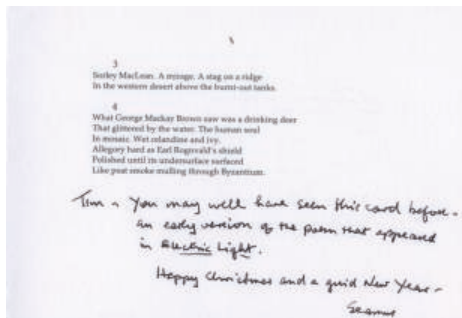 3
Sorley MacLean. A mirage. A stag on a ridge
In the western desert above the burnt-out tanks.
4
What George Mackay Brown saw was a drinking deer
That glittered by the water. The human soul
In mosaic. Wet celandine and ivy.
Allegory hard as Earl Rognvald's shield
Polished until its undersurface surfaced
Like peat smoke mulling through Byzantium.
Tim - You may well have seen this card before -
an early version of the poem that appeared
in Electric Light.
Happy Christmas and a guid New Year -
Seamus